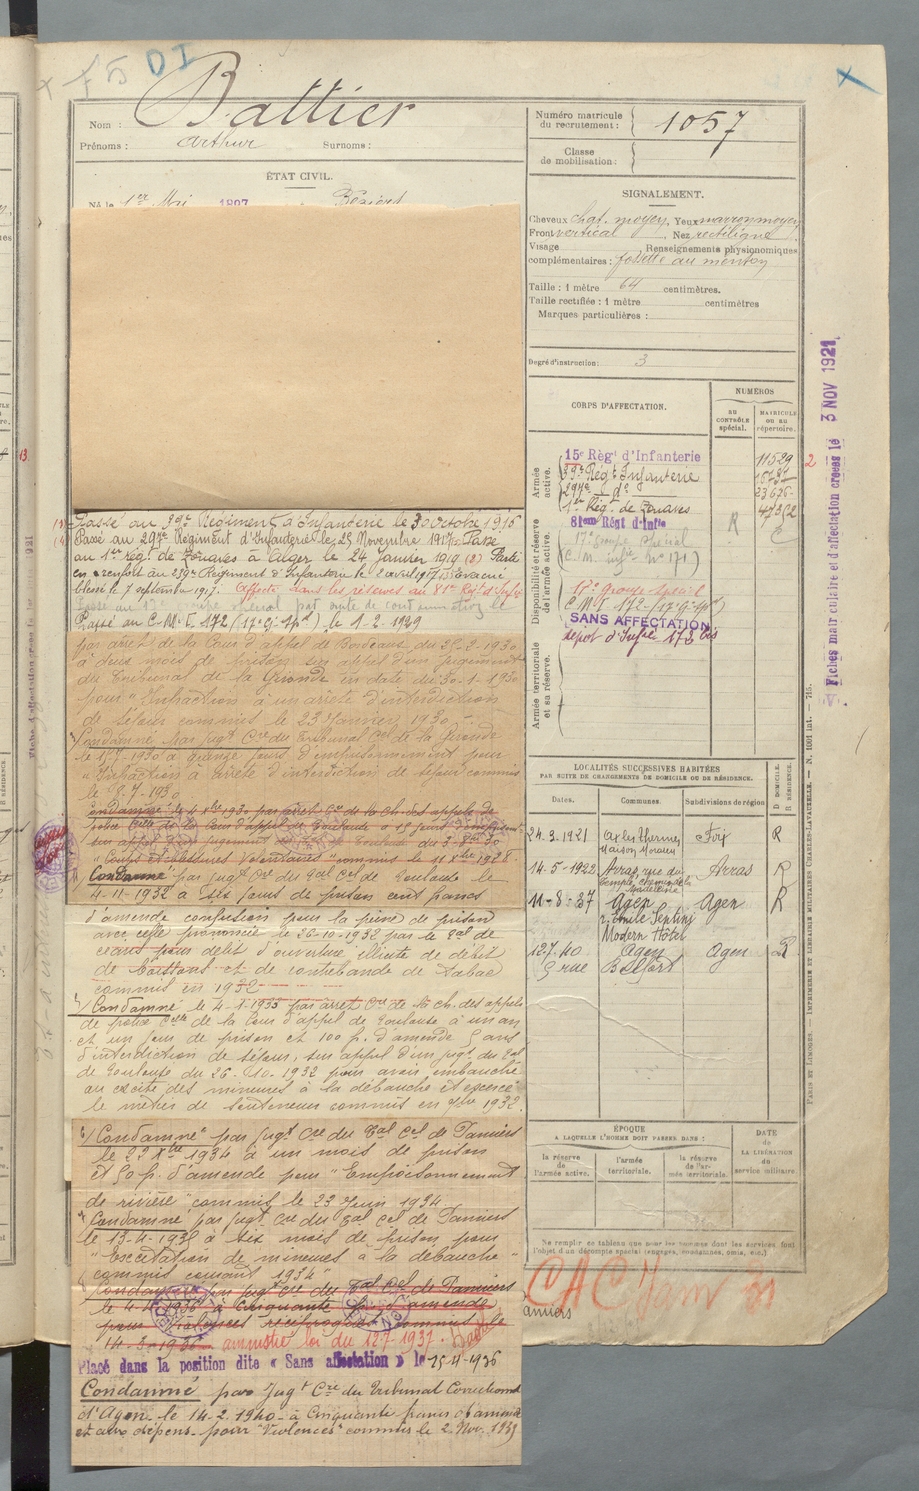 F5 DI
Nom : Battier
Prénoms : Arthur Surnoms :
ÉTAT CIVIL.
Né le 1er Mai 1897 Béziers
Passé au 39e Régiment d'Infanterie le 30 octobre 1916
Passé au 297e Régiment d'Infanterie le 25 Novembre 191 Passé
au 1er rég. de Zouaves à Alger le 24 Janvier 1919 (2) Parti
en renfort au 239e Régiment d'Infanterie le 2 avril 1917 Evacué
blessé le 7 septembre 1917. Affecté dans les réserves au 81e Régt d'Infie
Passé au C.M.I. 172 (17e g. spal) le 1-2-1929
par arrêt de la Cour d'appel de Bordeaux du 25-2-1930
à deux mois de prison sur appel d'un jugement
du Tribunal de la Gironde en date du 30-1-1930
pour "Infraction à un arrêté d'interdiction
de séjour commis le 23 Janvier 1930 -
Condamné par jugt Cre du Tribunal Cel de la Gironde
le 15-7-1930 à quinze jours d'emprisonnement pour
"Infraction à arrêté d'interdiction de séjour commis
le 8-7-1930
Condamné le 4 Xbre 1930 par arrêt Cre de la Ch. des appels de
police Celle de la Cour d'appel de Toulouse à 15 jours
sur appel
"Coups et blessures Volontaires" commis le 11 Xbre 1928
Condamné par jugt Cre du Tal Cel de Toulouse le
4-11-1932 à six jours de prison cent francs
d'amende confusion pour la peine de prison
avec celle prononcée le 26-10-1932 par le Tal de
céans pour délit d'ouverture illicite de débit
de boissons et de contrebande de Tabac
commis en 1932
Condamné le 4-1-1933 par arrêt Cre de la ch. des appels
de police Celle de la Cour d'appel de Toulouse à un an
et un jour de prison et 100 f. d'amende 5 ans
d'interdiction de séjour, sur appel d'un jugt du Tal
de Toulouse du 26-10-1932 pour avoir embauché
ou excité des mineures à la débauche et exercé
le métier de souteneur commis en 7bre 1932.
6/ Condamné par jugt Cre du Tal Cel de Pamiers
le 22 Xbre 1934 à un mois de prison
et 50 f. d'amende pour "Empoisonnement
de rivière" commis le 23 Juin 1934
Condamné par jugt Cre du Tal Cel de Pamiers
le 13-4-1935 à six mois de prison pour
"Excitation de mineures à la débauche"
commis courant 1934
Condamné par jugt Cre du Tal Cel de Pamiers
le 4-4-1936 à Cinquante f. d'amende
pour Violences réciproques commis le
14-3-1936 amnistié loi du 12-7-1937.
Placé dans la position dite « Sans affectation » le 15-4-1936
Condamné par Jugt Cre du Tribunal Correctionnel
d'Agen le 14-2-1940 à Cinquante francs d'amende
et aux dépens pour "Violences" commis le 2 Nov. 1939
Numéro matricule
du recrutement : 1057
Classe
de mobilisation :
SIGNALEMENT.
Cheveux chat. moyen, Yeux marron moyen
Front vertical, Nez rectiligne
Visage Renseignements physionomiques
complémentaires : fossette au menton
Taille : 1 mètre 64 centimètres.
Taille rectifiée : 1 mètre centimètres
Marques particulières :
Degré d'instruction : 3
CORPS D'AFFECTATION.
NUMÉROS
AU CONTRÔLE spécial.
MATRICULE OU AU répertoire.
Armée active.
15e Règt d'Infanterie 11529
39e Régt Infanterie
297e do 23676
1er Rég. de Zouaves
Disponibilité et réserve de l'armée active.
81eme Régt d'Infie
17e groupe spécial R
(C. M. infie No 171)
17e groupe spécial
C.M.I. 172 (17e g. spal)
SANS AFFECTATION
dépôt d'Infie 172 bis
Armée territoriale et sa réserve.
LOCALITÉS SUCCESSIVES HABITÉES
PAR SUITE DE CHANGEMENTS DE DOMICILE OU DE RÉSIDENCE.
Dates. Communes. Subdivisions de région D DOMICILE. R RÉSIDENCE.
24.3.1921 Ax les Thermes Foix R
Maison Moraeu
14-5-1922 Arras, rue du Arras R
Temple, chemin de la
Madeleine
11-8-37 Agen Agen R
r. Emile Sentini
Modern Hôtel
12.7.40 Agen Agen R
3 rue Belfort
ÉPOQUE
A LAQUELLE L'HOMME DOIT PASSER DANS :
DATE de LA LIBÉRATION du service militaire
la réserve de l'armée active.
l'armée territoriale.
la réserve de l'armée territoriale.
Ne remplir ce tableau que pour les hommes dont les services font
l'objet d'un décompte spécial (engagés, condamnés, omis, etc.)
CAC
amiers
Fiches matriculaire et d'affectation créées le 3 NOV 1921
PARIS ET LIMOGES. — IMPRIMERIE ET LIBRAIRIE MILITAIRES CHARLES-LAVAUZELLE.